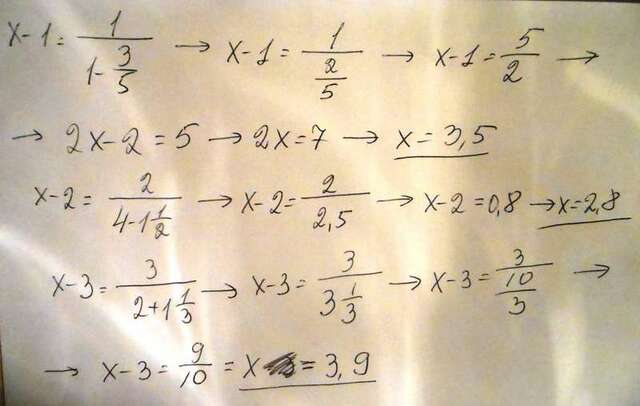 x-1 = 1/(1-3/5) → x-1 = 1/(2/5) → x-1 = 5/2 →
→ 2x-2=5 → 2x=7 → x=3,5
x-2 = 2/(4-1 1/2) → x-2 = 2/2,5 → x-2=0,8 → x=2,8
x-3 = 3/(2+1 1/3) → x-3 = 3/(3 1/3) → x-3 = 3/(10/3) →
→ x-3 = 9/10 = x = 3,9